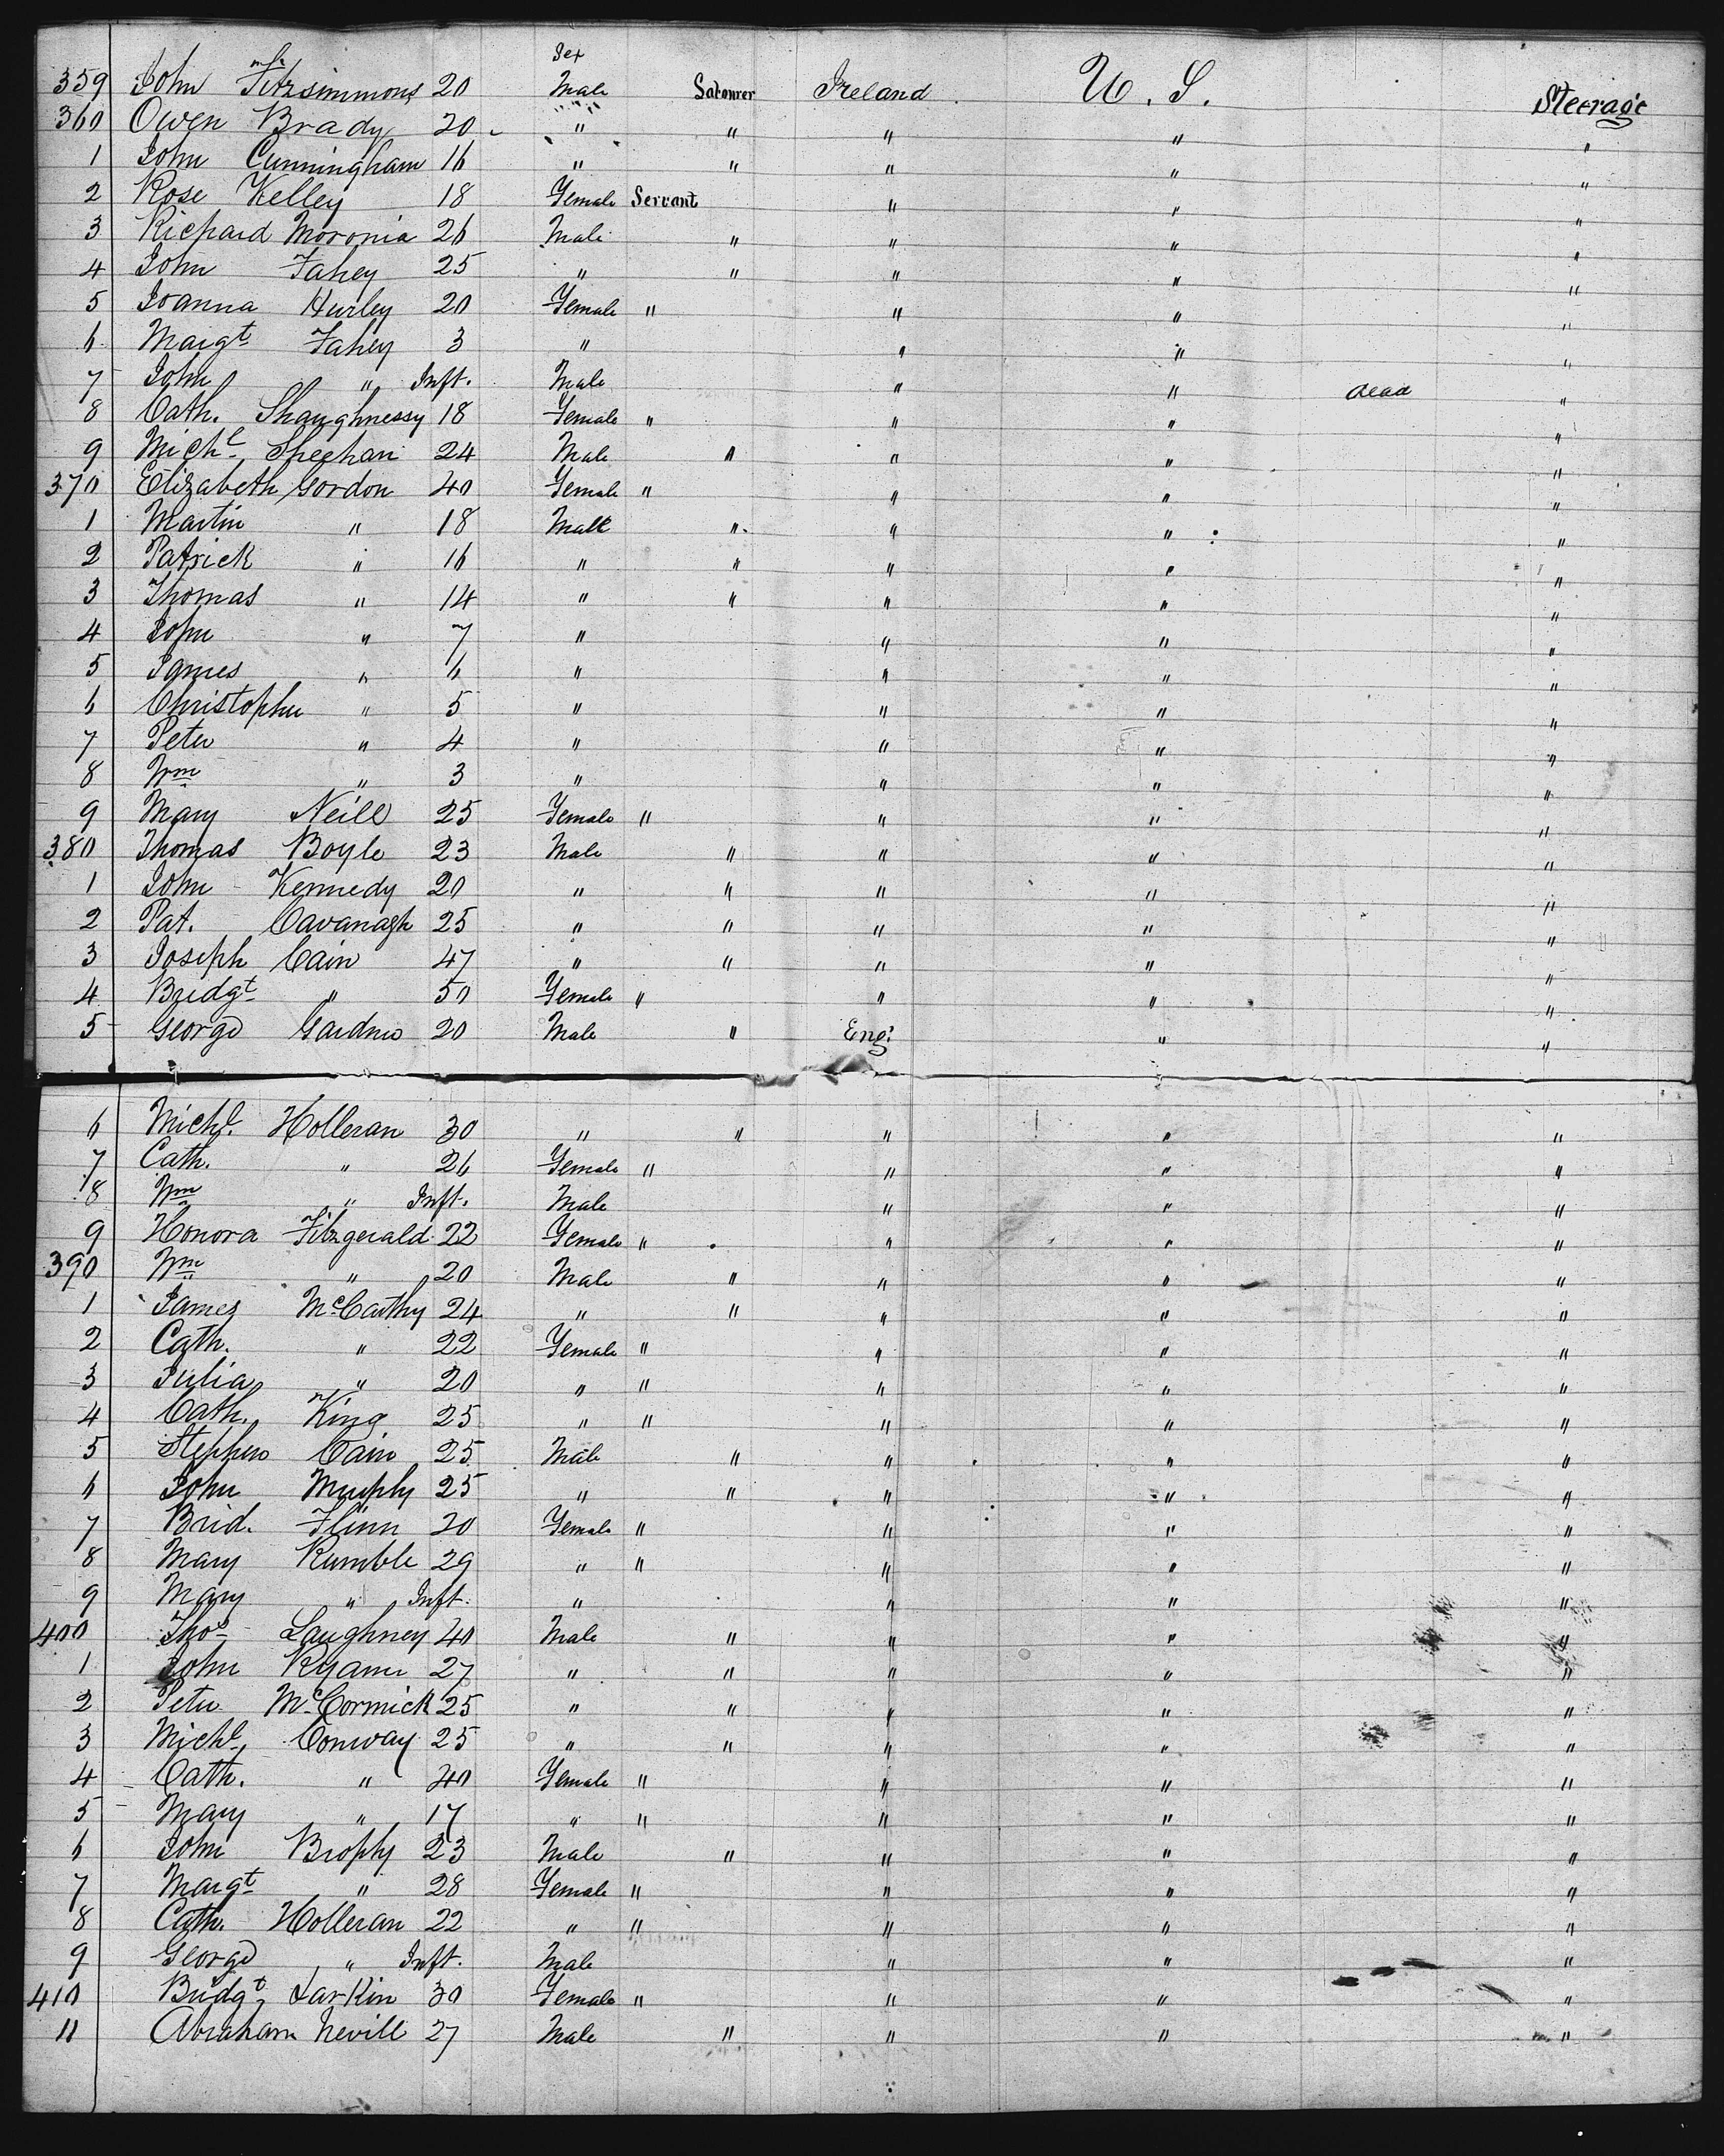 Sex
359 John Fitzsimmons 20 Male Labourer Ireland U. S. Steerage
360 Owen Brady 20 " " " " "
1 John Cunningham 16 " " " " "
2 Rose Kelley 18 Female Servant " " "
3 Richard Moronia 26 Male " " " "
4 John Fahey 25 " " " " "
5 Joanna Hurley 20 Female " " " "
6 Margt Fahey 3 " " " "
7 John " Inft. Male " " dead "
8 Cath. Shaughnessy 18 Female " " " "
9 Michl Sheehan 24 Male " " " "
370 Elizabeth Gordon 40 Female " " " "
1 Martin " 18 Male " " " "
2 Patrick " 16 " " " " "
3 Thomas " 14 " " " " "
4 John " 7 " " " "
5 James " 6 " " " "
6 Christopher " 5 " " " "
7 Peter " 4 " " " "
8 Wm " 3 " " " "
9 Mary Neill 25 Female " " " "
380 Thomas Boyle 23 Male " " " "
1 John Kennedy 20 " " " " "
2 Pat. Cavanagh 25 " " " " "
3 Joseph Cain 47 " " " " "
4 Bridgt " 50 Female " " " "
5 George Gardner 20 Male " Eng: " "
6 Michl. Holleran 30 " " " " "
7 Cath. " 26 Female " " " "
8 Wm " Inft. Male " " "
9 Honora Fitzgerald 22 Female " " " "
390 Wm " 20 Male " " " "
1 James McCarthy 24 " " " " "
2 Cath. " 22 Female " " " "
3 Julia " 20 " " " " "
4 Cath. King 25 " " " " "
5 Stephen Cain 25 Male " " " "
6 John Murphy 25 " " " " "
7 Brid. Flinn 20 Female " " " "
8 Mary Rumble 29 " " " " "
9 Mary " Inft. " " " "
400 Thos Laughney 40 Male " " " "
1 John Ryan 27 " " " " "
2 Peter McCormick 25 " " " " "
3 Michl. Conway 25 " " " " "
4 Cath. " 40 Female " " " "
5 Mary " 17 " " " " "
6 John Brophy 23 Male " " " "
7 Margt " 28 Female " " " "
8 Cath. Holleran 22 " " " " "
9 George " Inft. Male " " "
410 Bridgt Larkin 30 Female " " " "
11 Abraham Nevill 27 Male " " " "